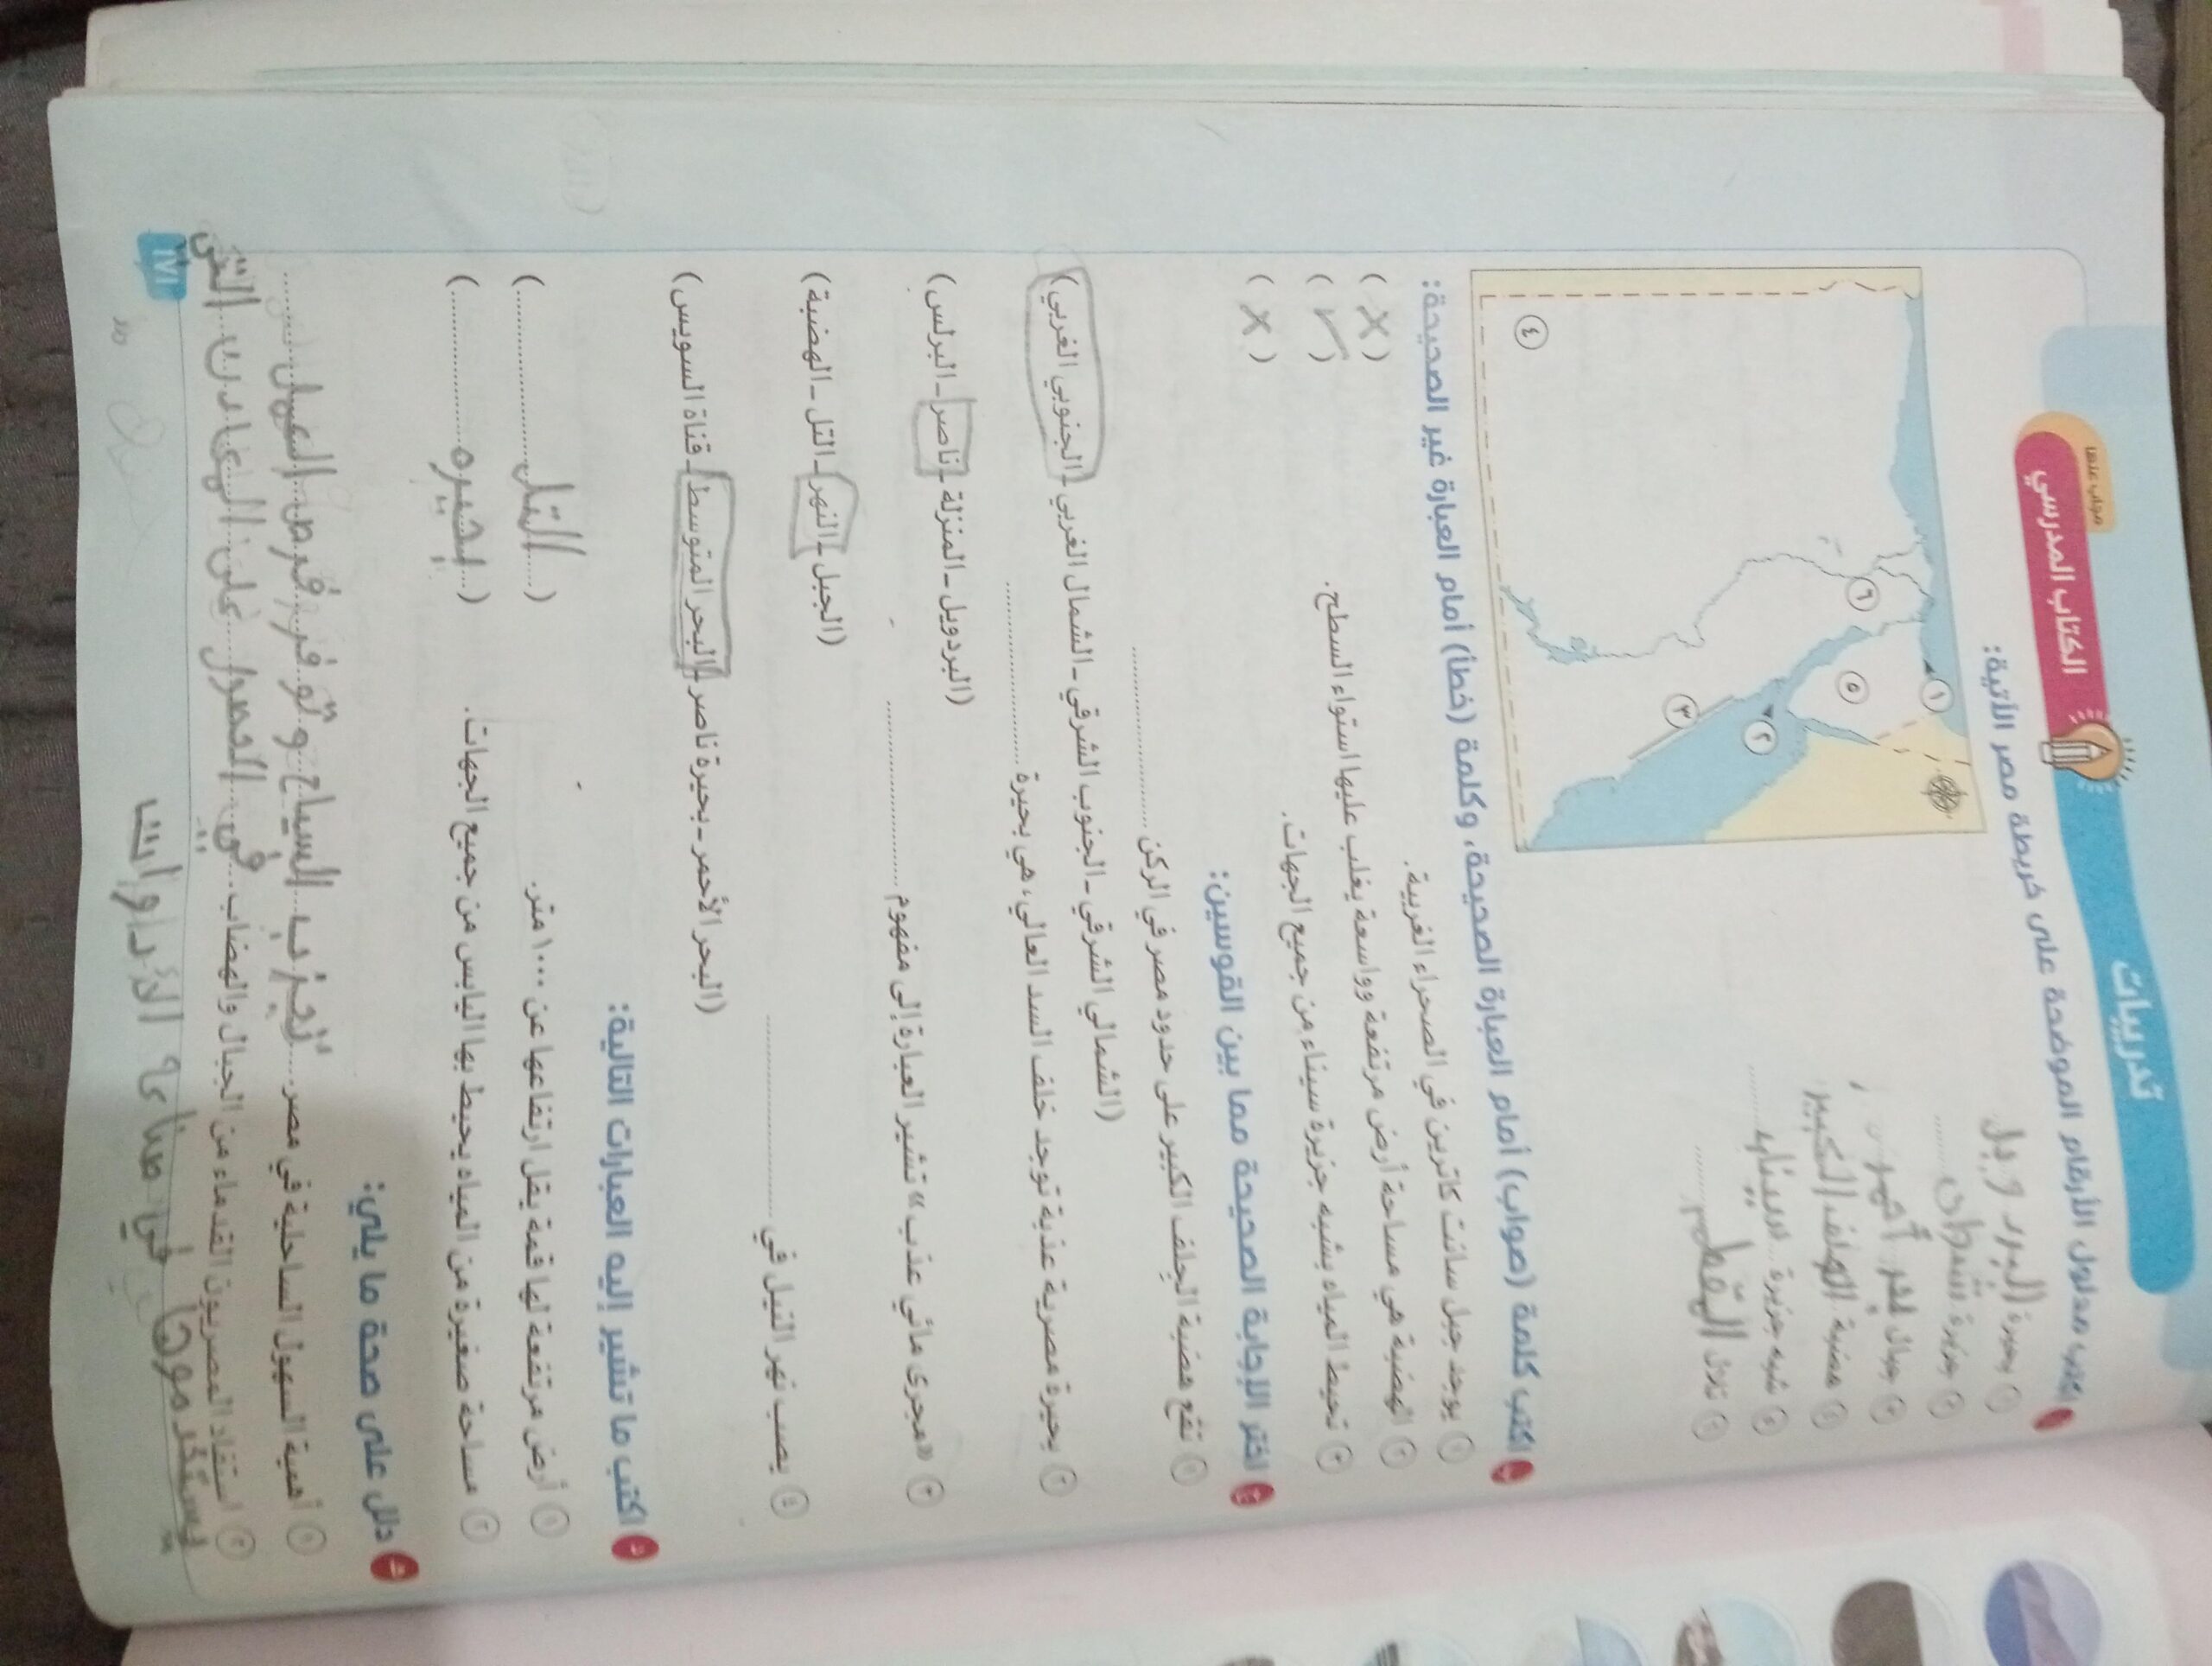 تدريبات
مجاب عنها
الكتاب المدرسي
أ اكتب مدلول الأرقام الموضحة على خريطة مصر الآتية:
١ بحيرة البردويل
٢ جزيرة شدوان
٣ جبال البحر الأحمر
٤ هضبة الجلف الكبير
٥ شبه جزيرة سيناء
٦ تلال المقطم
١
٢
٣
٤
٥
٦
ب اكتب كلمة (صواب) أمام العبارة الصحيحة، وكلمة (خطأ) أمام العبارة غير الصحيحة:
١ يوجد جبل سانت كاترين في الصحراء الغربية. (X)
٢ الهضبة هي مساحة أرض مرتفعة وواسعة يغلب عليها استواء السطح. (✓)
٣ تحيط المياه بشبه جزيرة سيناء من جميع الجهات. (X)
ج اختر الإجابة الصحيحة مما بين القوسين:
١ تقع هضبة الجلف الكبير على حدود مصر في الركن ....................
(الشمالي الشرقي - الجنوب الشرقي - الشمال الغربي - الجنوبي الغربي)
٢ بحيرة مصرية عذبة توجد خلف السد العالي، هي بحيرة ....................
(البردويل - المنزلة - ناصر - البرلس)
٣ «مجرى مائي عذب» تشير العبارة إلى مفهوم ....................
(الجبل - النهر - التل - الهضبة)
٤ يصب نهر النيل في ....................
(البحر الأحمر - بحيرة ناصر - البحر المتوسط - قناة السويس)
د اكتب ما تشير إليه العبارات التالية:
١ أرض مرتفعة لها قمة يقل ارتفاعها عن ١٠٠٠ متر. (التل)
٢ مساحة صغيرة من المياه يحيط بها اليابس من جميع الجهات. (بحيره)
هـ دلل على صحة ما يلي:
١ أهمية السهول الساحلية في مصر. تجزب السياح و توفر فرص العمل
٢ استفاد المصريون القدماء من الجبال والهضاب. في الحصول على المعادن التى
يستخدموها في صناعه الأدوات
١٧١